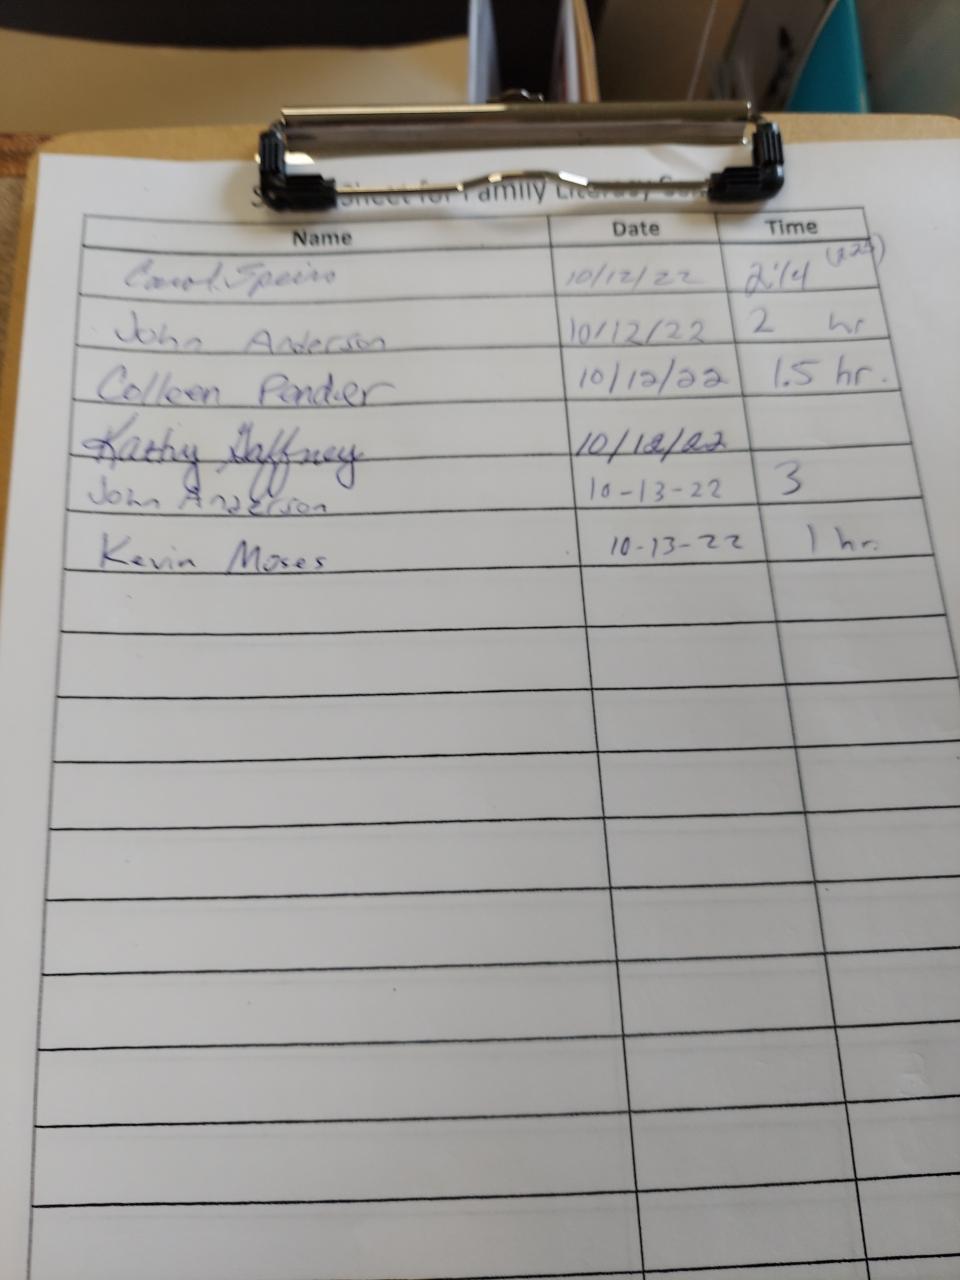 Sheet for Family Literacy
Name Date Time
Carol Speiro 10/12/22 2:14 (2.25)
John Anderson 10/12/22 2 hr
Colleen Pender 10/12/22 1.5 hr.
Kathy Gaffney 10/12/22
John Anderson 10-13-22 3
Kevin Moses 10-13-22 1 hr.